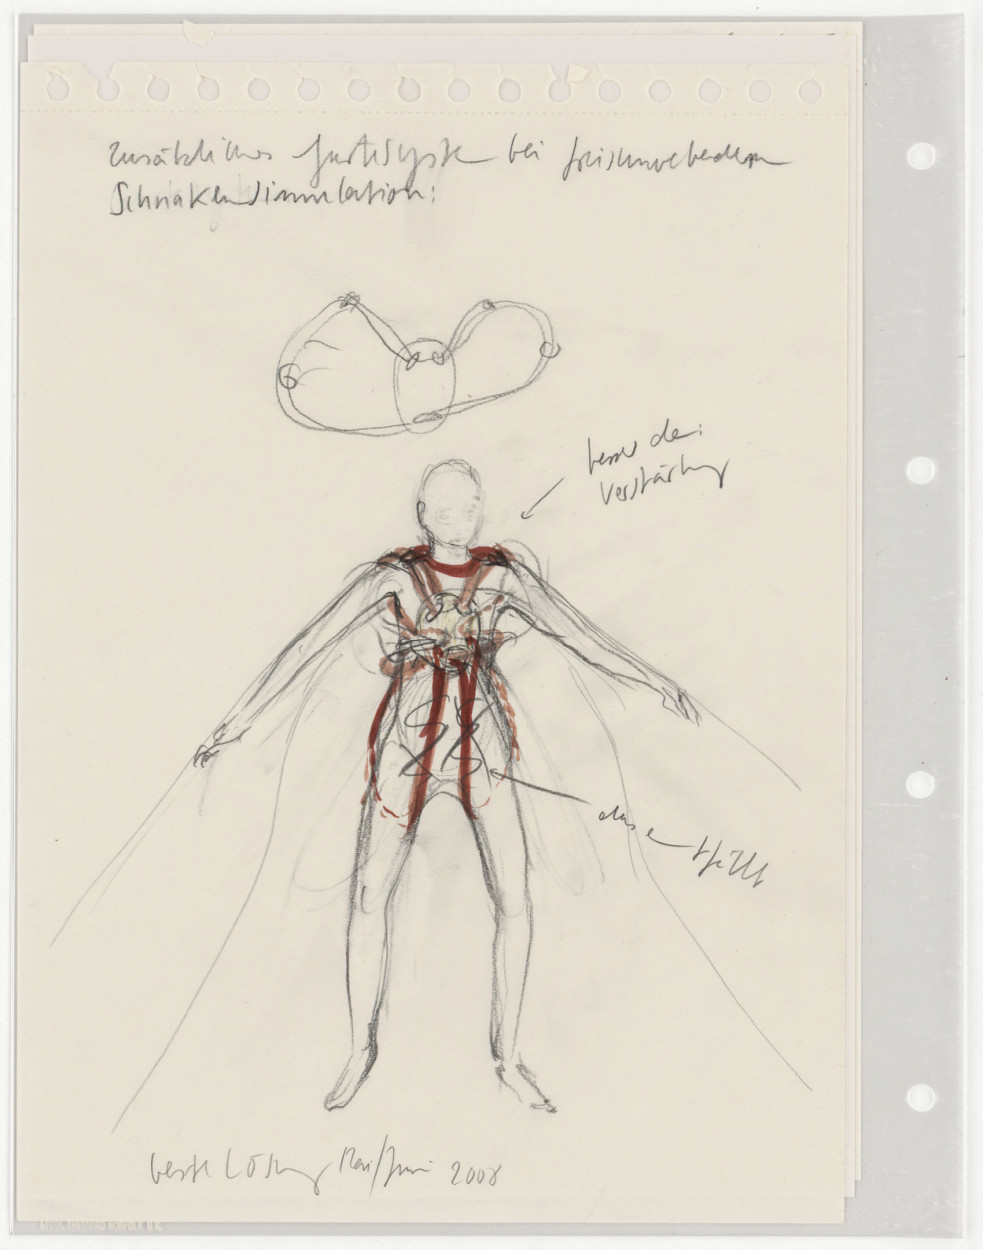 zusätzliches Gurtsystem bei freischwebendem
Schnakensimulation:
besser den:
Verstärkung
das
beste Lösung Mai/Juni 2008